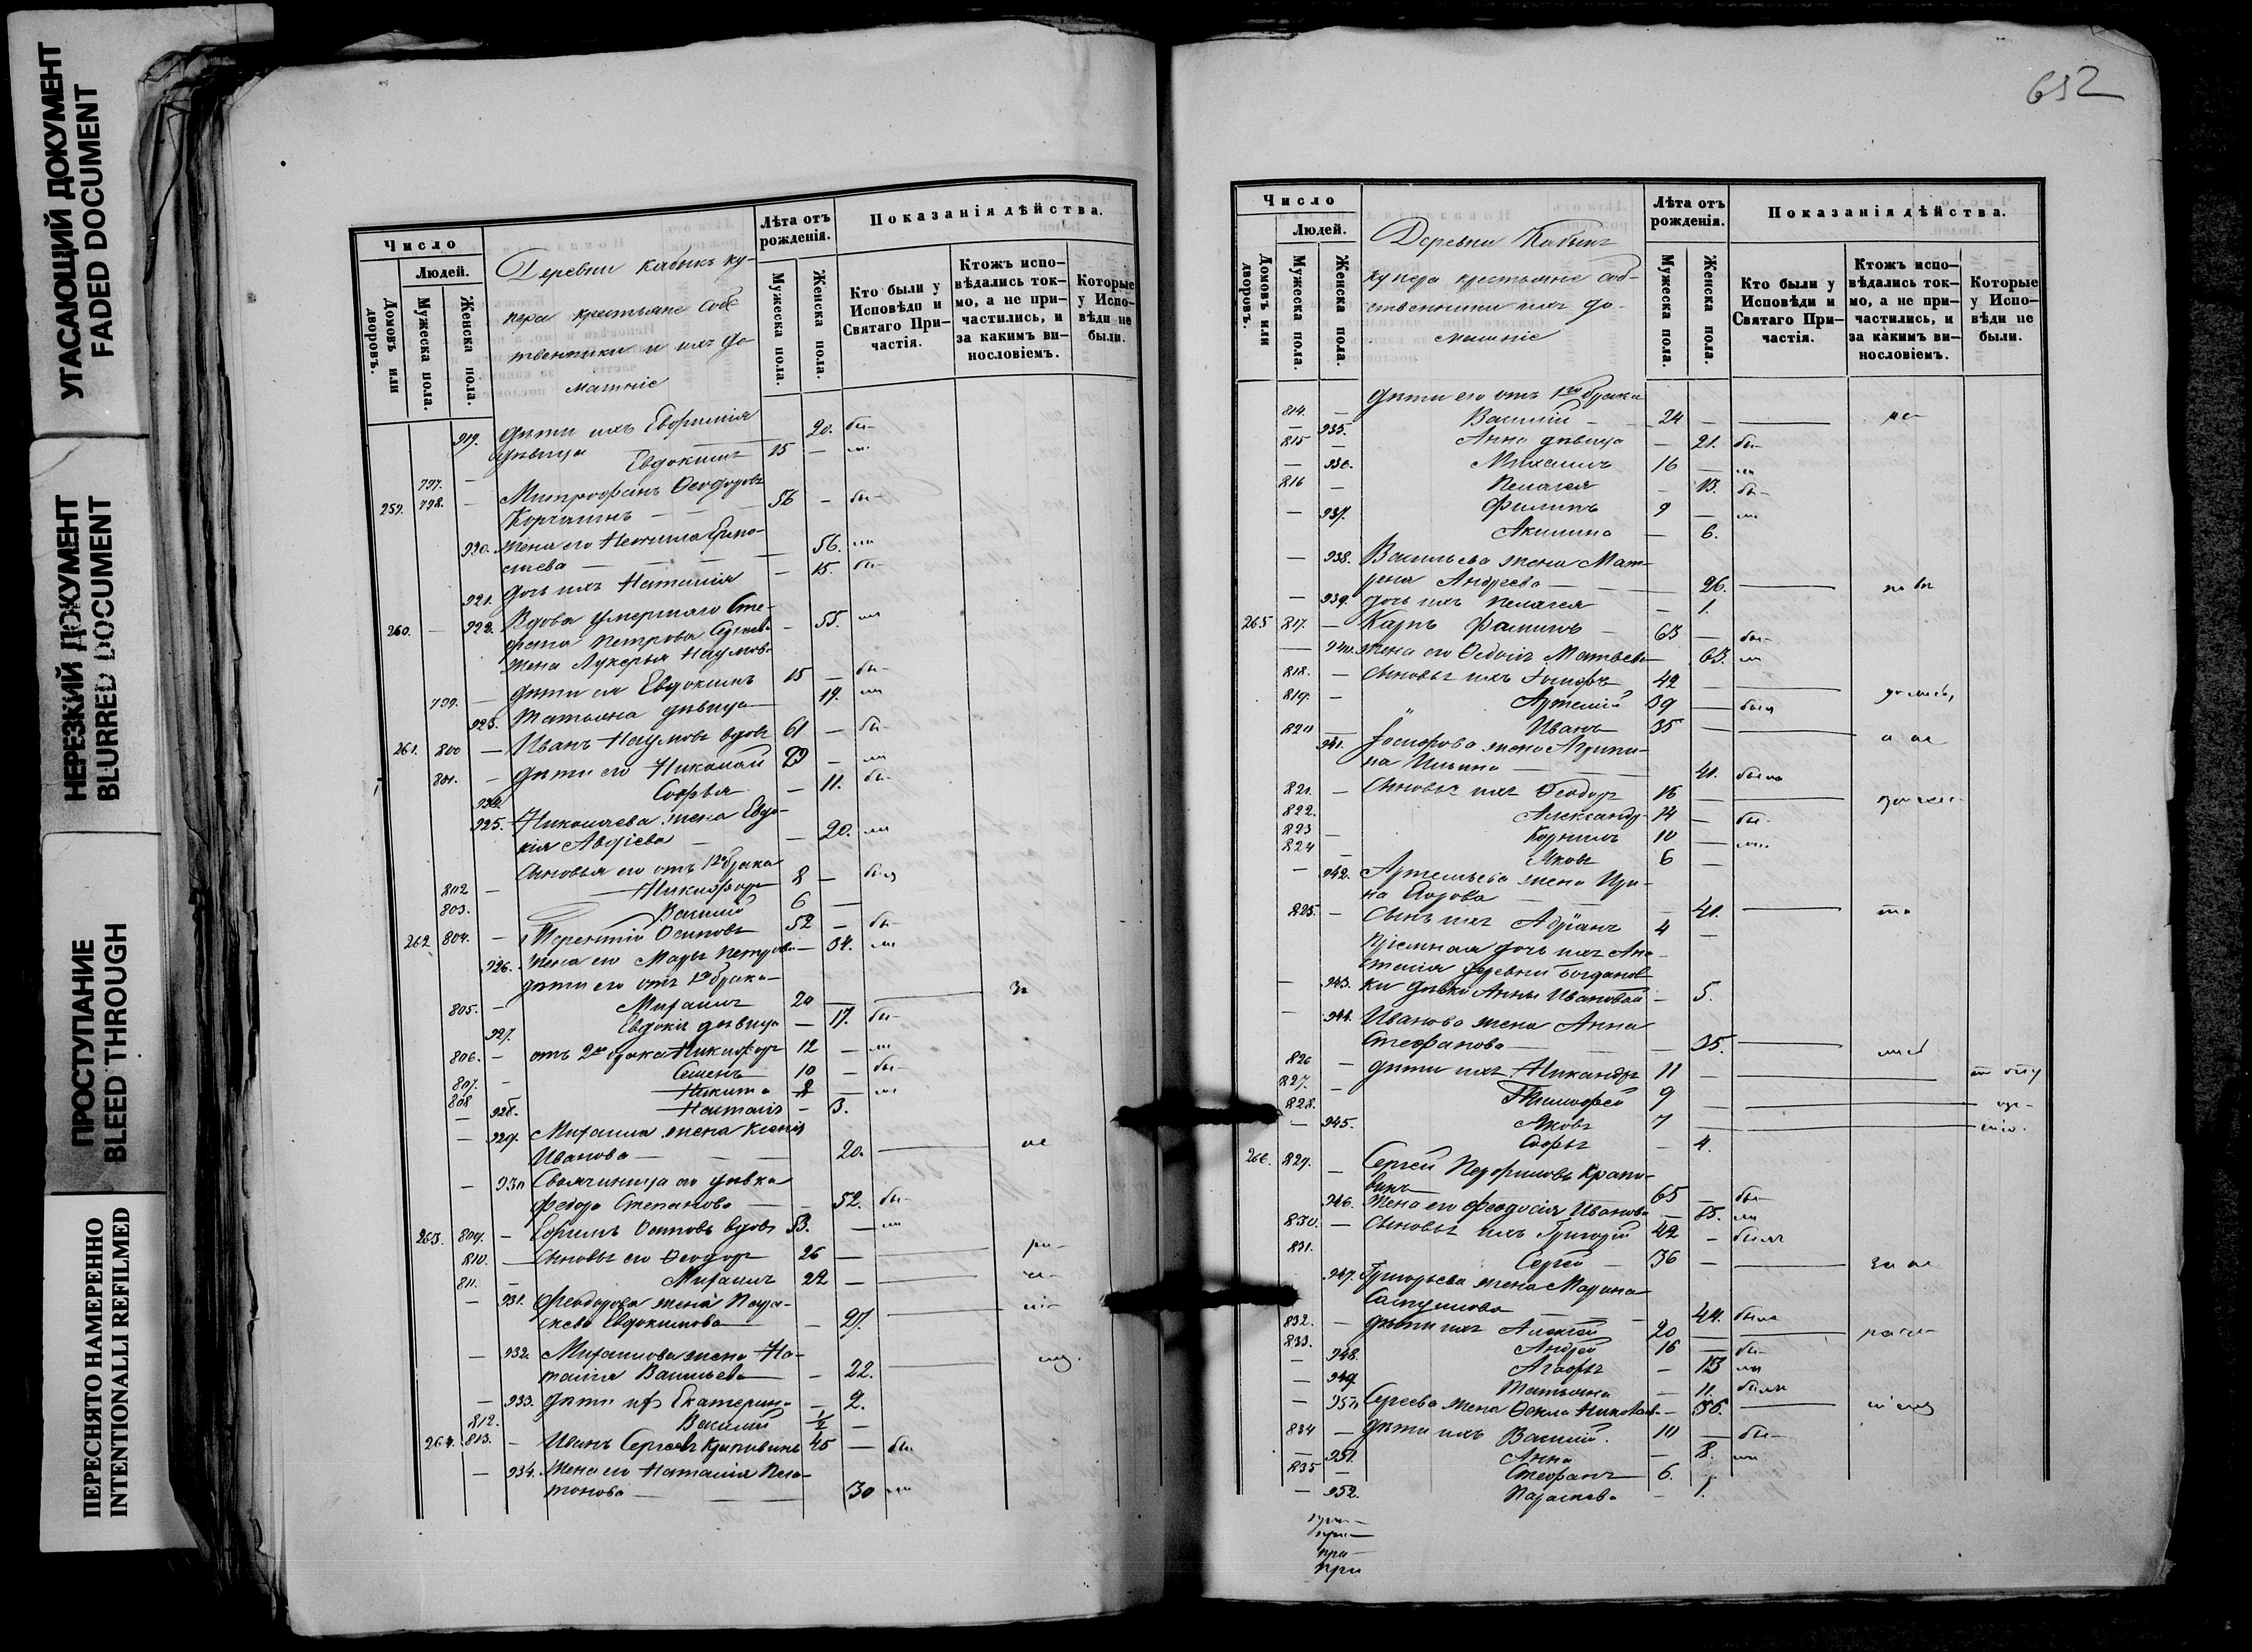 УГАСАЮЩИЙ ДОКУМЕНТ
FADED DOCUMENT
НЕРЕЗКИЙ ДОКУМЕНТ
BLURRED DOCUMENT
ПРОСТУПАНИЕ
BLEED THROUGH
ПЕРЕСНЯТО НАМЕРЕННО
INTENTIONALLI REFILMED
Число
Людей.
Домовъ или дворовъ.
Мужеска пола.
Женска пола.
Деревни Кабыкъ ку-
пера крестьяне собс
твенники и ихъ до-
машніе
Лѣта отъ рожденія.
Мужеска пола.
Женска пола.
Показанія дѣйства.
Кто были у Исповѣди и Святаго При-частія.
Ктожъ испо-вѣдались ток-мо, а не при-частились, и за какимъ ви-нословіемъ.
Которые у Испо-вѣди не были.
919. дѣти ихъ Евфимія
дѣвица 20. бы-
797. Евдокимъ 15
259. 798. Митрофанъ Феодоровъ
Корчагинъ 56 бы-
920. жена его
56. ли
921. дочь ихъ Наталія 15. бы-
260. 922. Вдова умершаго Сте-
фана Петрова Сергеева
жена Лукерья Наумова 55. ли
799. дѣти ея Евдокимъ 15 бы-
923. Татьяна дѣвица 19. ли
261. 800 Иванъ Наумовъ вдовъ 61 бы-
801. дѣти его Николай 23 ли
924. Софья 11. бы-
925. Николаева жена Евдо-
кія Авдіева 20. ли
Сыновья его отъ 1го брака
802 Никифоръ 8 бы
803. Василій 6
262 804. Терентій Осиповъ 52 бы-
926. жена его Марья Петрова 34. ли
дѣти его отъ 1го брака
805. Михаилъ 20 за
927. Евдокія дѣвица 17. бы-
806. отъ 2го брака Никифоръ 12 ли
807. Семенъ 10 бы-
808 Никита 8 ли
928. Наталія 3.
929. Михаила жена Ксенія
Иванова 20.
930 Свояченица его дѣвка
Федора Степанова 52. бы-
263. 809. Ефимъ Осиповъ вдовъ 53. ли
810. Сыновья его Феодоръ 26
811. Михаилъ 22
931. Феодорова жена Пара-
скева Евдокимова 27.
932. Михаилова жена На-
талія Васильева 22.
933. дѣти их Екатерина 2.
812. Василій 1/2
264. 813. Иванъ Сергеевъ Крапивинъ 45 бы
934. Жена его Наталія Пла-
тонова 30 ли
652
Число
Людей.
Домовъ или дворовъ.
Мужеска пола.
Женска пола.
Деревни Кабыкъ
купера крестьяне соб-
ственники ихъ до-
машніе
Лѣта отъ рожденія.
Мужеска пола.
Женска пола.
Показанія дѣйства.
Кто были у Исповѣди и Святаго При-частія.
Ктожъ испо-вѣдались ток-мо, а не при-частились, и за какимъ ви-нословіемъ.
Которые у Испо-вѣди не были.
дѣти его отъ 1го брака
814. Василій 24
935. Анна дѣвица 21. бы-
815 Михаилъ 16 ли
936. Пелагея 13. бы-
816 Филипъ 9 ли
937. Акилина 6.
938. Васильева жена Мат-
рена Андреева 26.
939. дочь ихъ Пелагея 1.
265 817. Карпъ Фаминъ 63 бы-
940. жена его Федосія Матвеева 63. ли
818. Сыновья ихъ Іосифъ 42
819. Артемій 39 былъ
820 Иванъ 35
941. Іосифова жена Агрипи-
на Ильина 41. была
821. Сыновья ихъ Феодоръ 16
822. Александръ 14 бы-
823 Корнилъ 10 ли
824 Яковъ 6
942. Артемьева жена Ири-
на Егорова 41.
825. Сынъ ихъ Адріанъ 4
Пріемная дочь ихъ Ана-
стасія деревни Богданов
943. ки дѣвки Анны Ивановой 5.
944. Иванова жена Анна
Стефанова 35.
826 дѣти ихъ Никандръ 11
827. Тимофей 9
828. Яковъ 7
945. Софья 4.
266. 829. Сергей Перфиловъ Крапи-
винъ 65 бы-
946. Жена его Феодосія Иванова 65. ли
830. Сыновья ихъ Григорій 42 былъ
831. Сергей 36
947. Григорьева жена Марина
44. была
832. дѣти ихъ Алексей 20
833. Андрей 16 бы-
948. Агафья 13 ли
949. Татьяна 11. были
950 Сергеева жена Фекла Николаева 36.
834 дѣти ихъ Василій. 10 бы-
951. Анна 8. ли
835 Стефанъ 6.
952. Параскева 1.
при
при
при
при